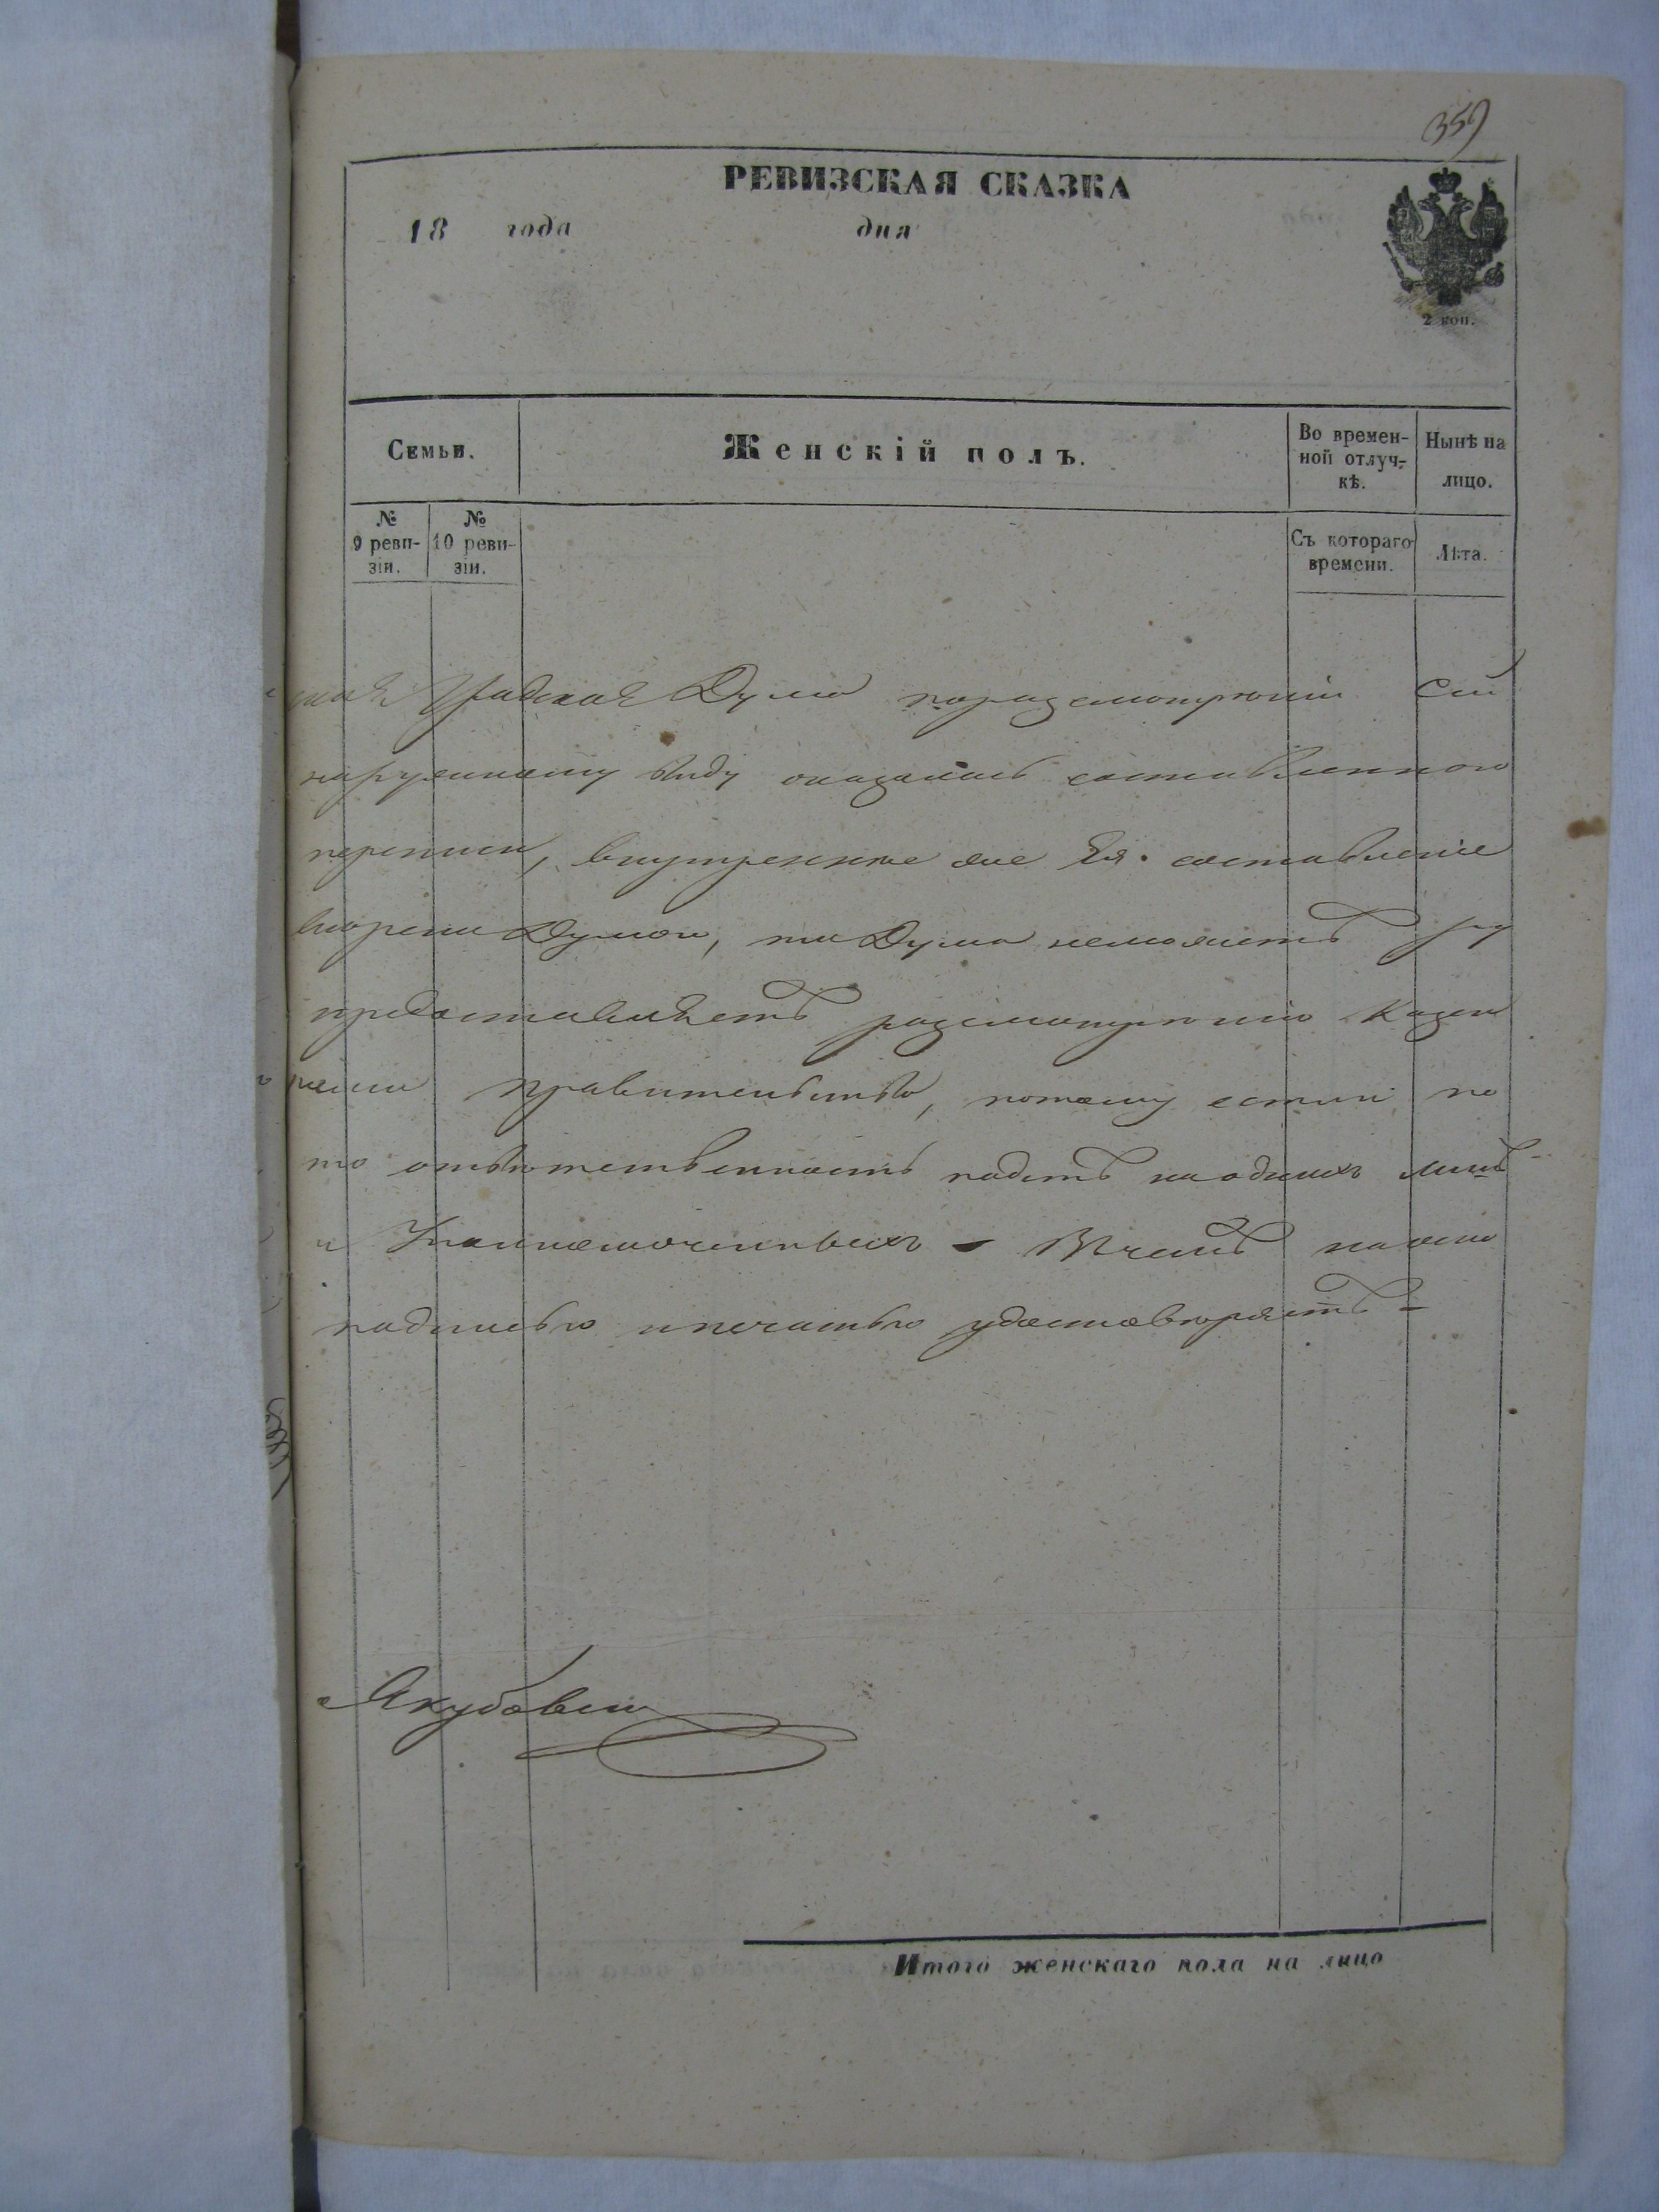 359
РЕВИЗСКАЯ СКАЗКА
18 года дня
2 коп.
Семьи.
Женскій полъ.
Во времен-
ной отлуч-
кѣ.
Нынѣ на
лицо.
№
9 реви-
зіи.
№
10 реви-
зіи.
Съ котораго
времени.
Лѣта.
Градская Дума поразсмотрѣніи сей
наружному виду оказалась составленною
переписи, внутренные же Ея составленіе
Думою, то Дума неможетъ
предоставляетъ разсмотрѣнію Казен
Правительства, потому естли по
то отвѣтственность падетъ наоднихъ лицъ
и Уполномоченныхъ - Вчемъ
подписью ипечатью удостовѣряетъ -
Якубович
Итого женскаго пола на лицо